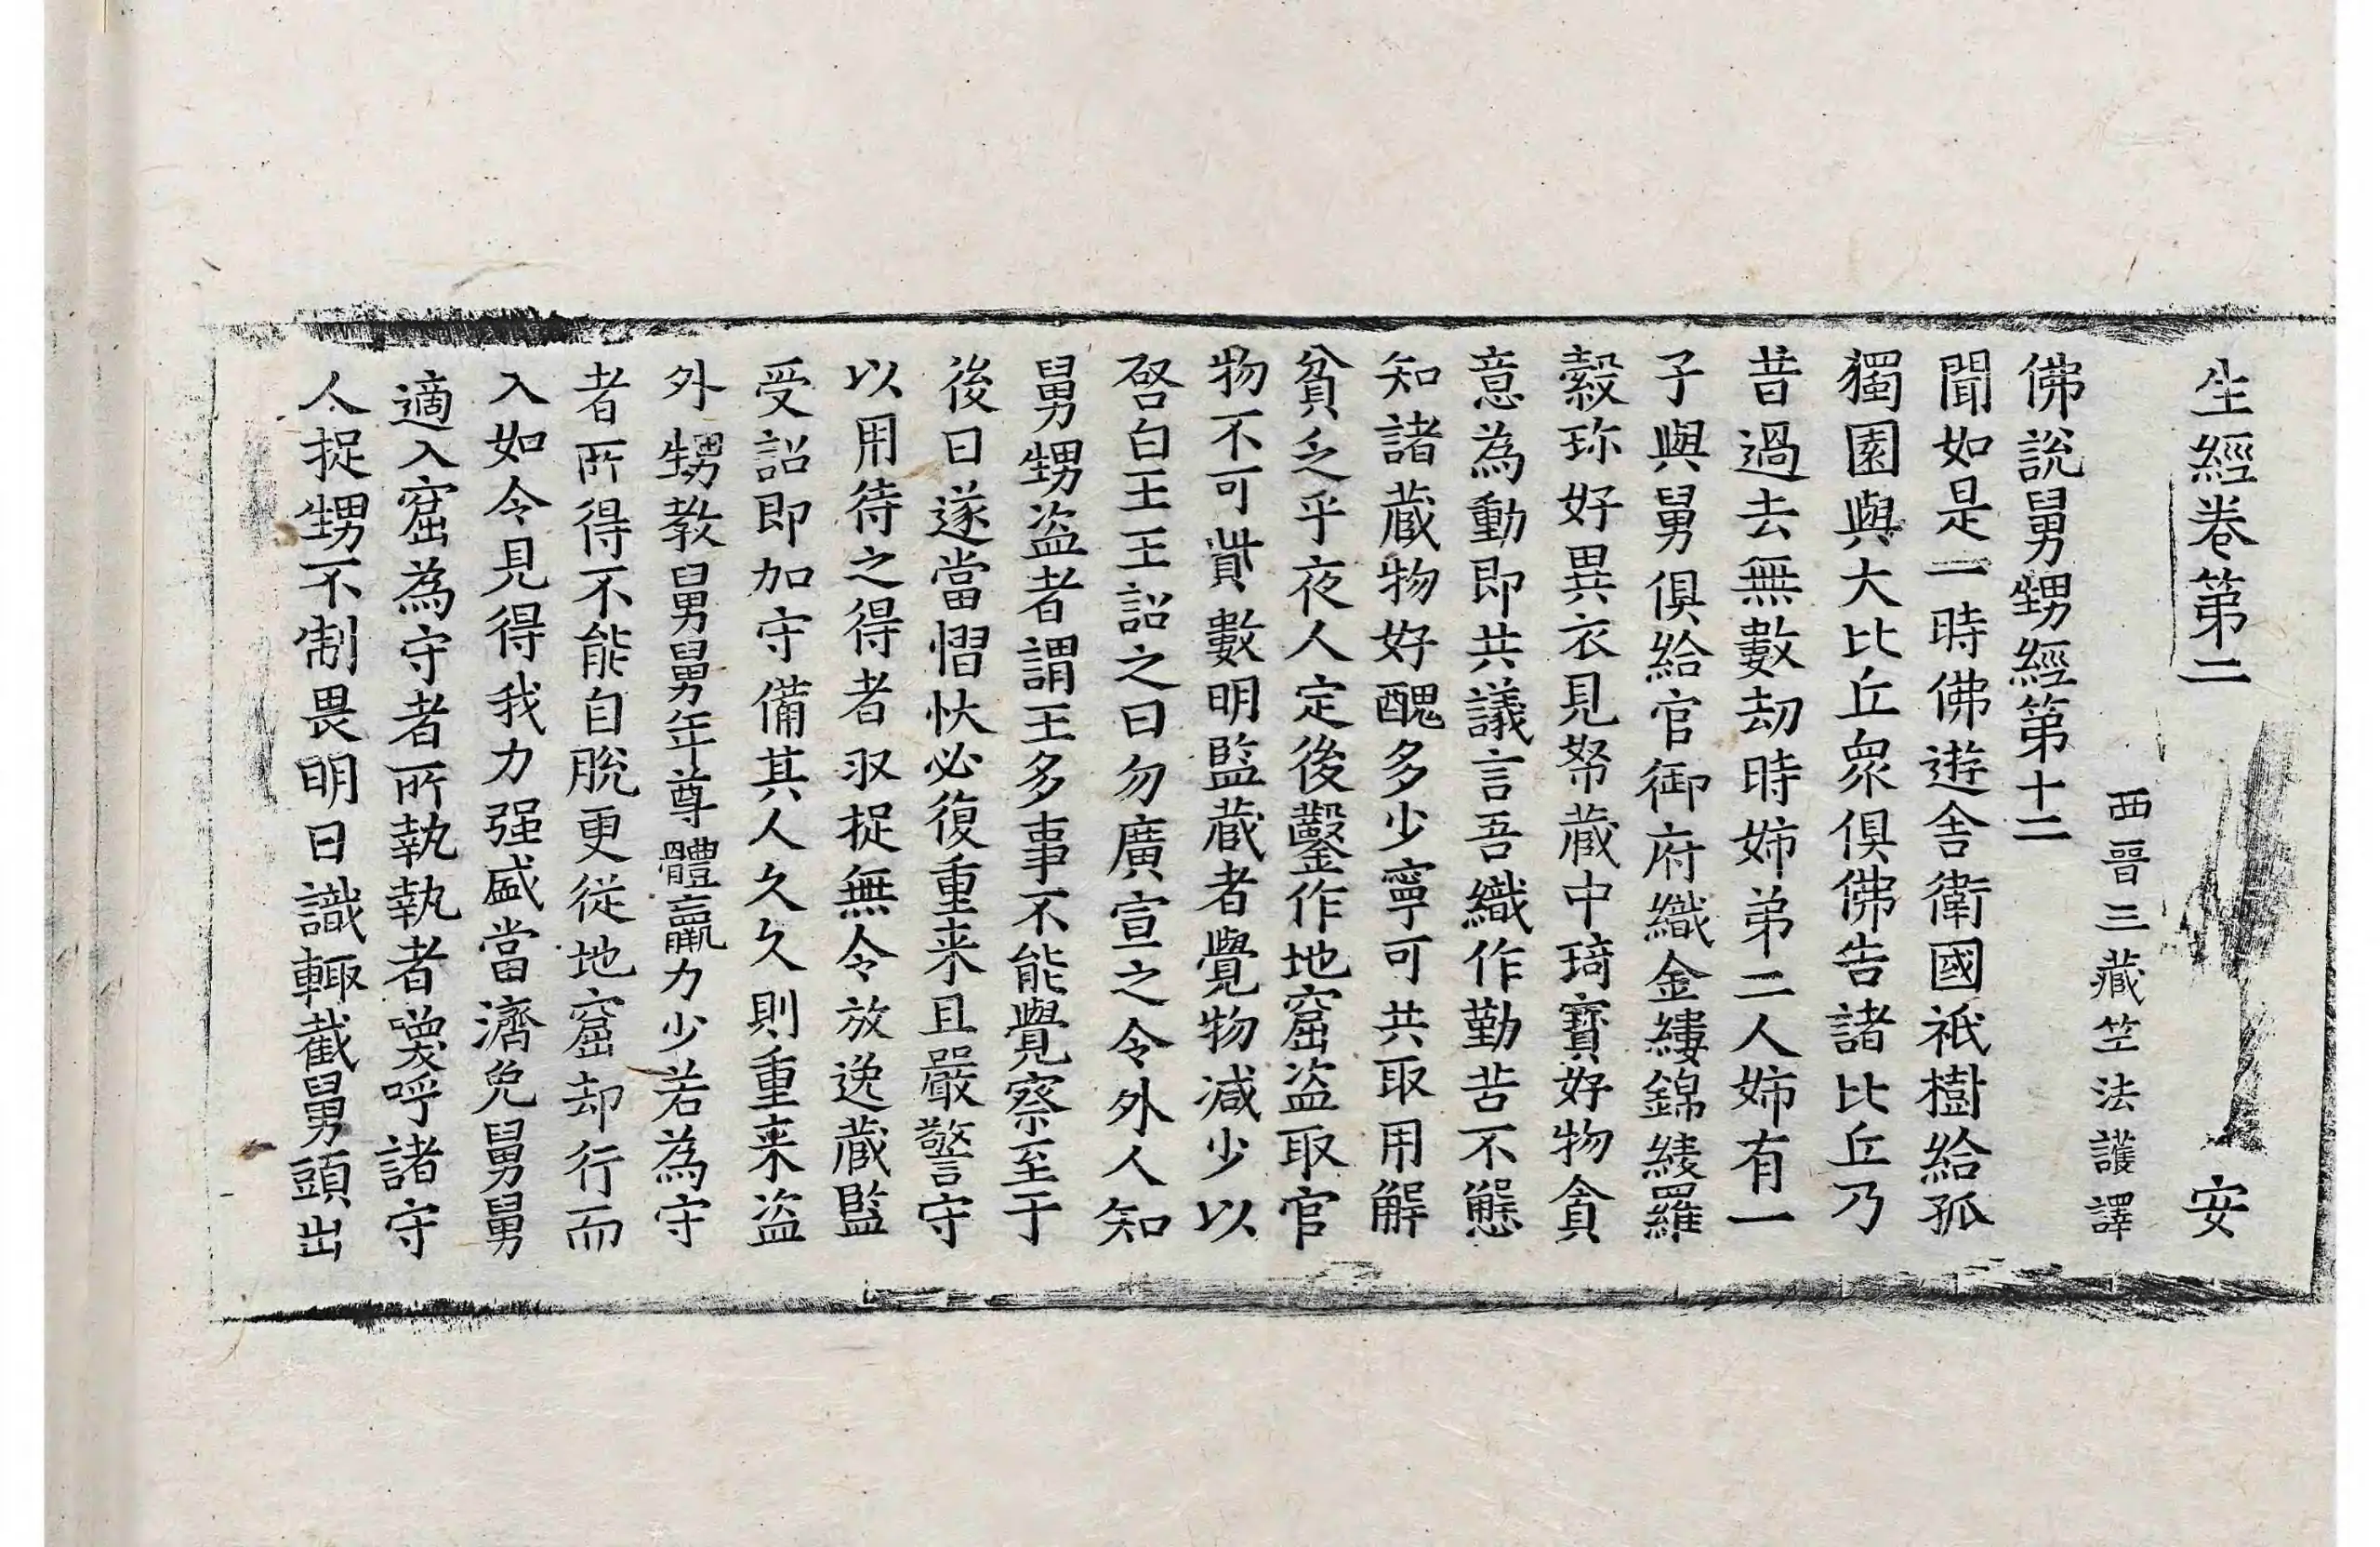 生經卷第二 安
西晉三藏竺法護譯
佛說舅甥經第十二
聞如是一時佛遊舍衛國祇樹給孤
獨園與大比丘衆俱佛告諸比丘乃
昔過去無數劫時姉弟二人姉有一
子與舅俱給官御府織金縷錦綾羅
縠珎好異衣見帑藏中琦寶好物貪
意為動即共議言吾織作勤苦不懈
知諸藏物好醜多少寧可共取用解
貧乏乎夜人定後鑿作地窟盜取官
物不可貲數明監藏者覺物減少以
啓白王王詔之曰勿廣宣之令外人知
舅甥盜者謂王多事不能覺察至于
後日遂當慴忕必復重来且嚴警守
以用待之得者收捉無令放逸藏監
受詔即加守備其人久久則重来盜
外甥教舅舅年尊體羸力少若為守
者所得不能自脫更從地窟却行而
入如令見得我力强盛當濟免舅舅
適入窟為守者所執執者喚呼諸守
人捉甥不制畏明日識輙截舅頭出